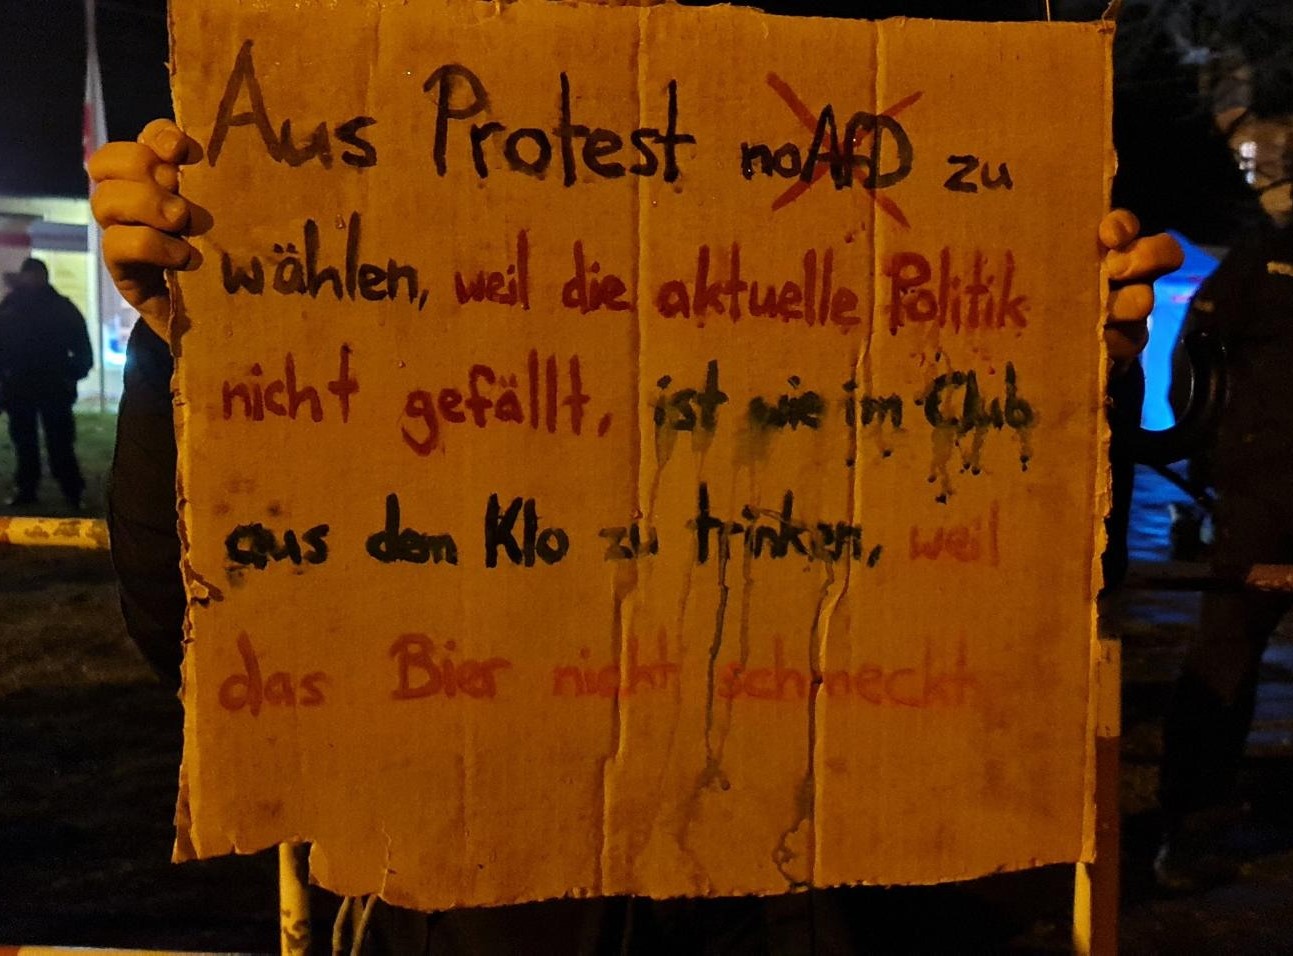 Aus Protest noAfD zu
wählen, weil die aktuelle Politik
nicht gefällt, ist wie im Club
aus dem Klo zu trinken, weil
das Bier nicht schmeckt